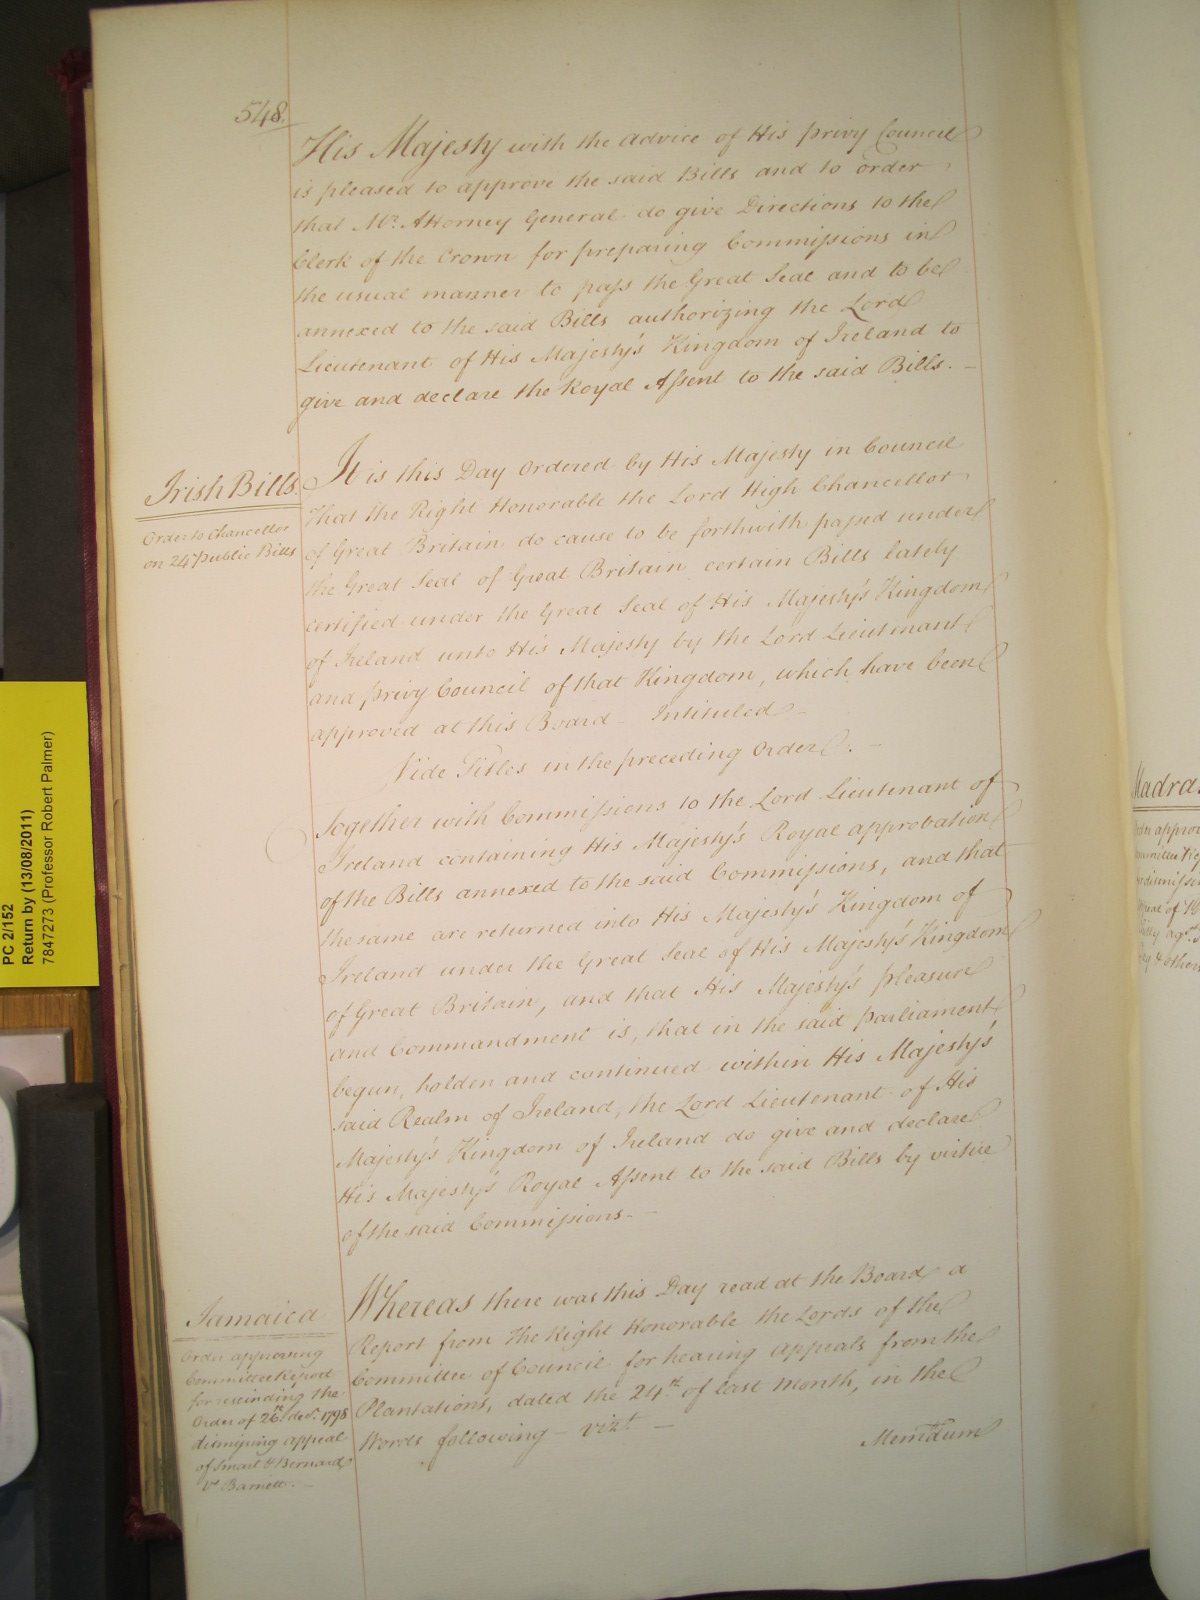 548.
His Majesty with the advice of His Privy Council
is pleased to approve the said Bills and to order
that Mr. Attorney General do give Directions to the
Clerk of the Crown for preparing Commissions in
the usual manner to pass the Great Seal and to be
annexed to the said Bills authorizing the Lord
Lieutenant of His Majesty's Kingdom of Ireland to
give and declare the Royal Assent to the said Bills. -
Irish Bills.
Order to Chancellor
on 24 public Bills
It is this Day Ordered by His Majesty in Council
That the Right Honorable the Lord High Chancellor
of Great Britain do cause to be forthwith passed under
the Great Seal of Great Britain certain Bills lately
certified under the Great Seal of His Majesty's Kingdom
of Ireland unto His Majesty by the Lord Lieutenant
and Privy Council of that Kingdom, which have been
approved at this Board - Intituled -
Vide Titles in the preceding Order. -
Together with Commissions to the Lord Lieutenant of
Ireland containing His Majesty's Royal approbation
of the Bills annexed to the said Commissions, and that
the same are returned into His Majesty's Kingdom of
Ireland under the Great Seal of His Majesty's Kingdom
of Great Britain, and that His Majesty's pleasure
and Commandment is, that in the said parliament
begun, holden and continued within His Majesty's
said Realm of Ireland, the Lord Lieutenant of His
Majesty's Kingdom of Ireland do give and declare
His Majesty's Royal Assent to the said Bills by virtue
of the said Commissions. -
Jamaica
Order approving
Committee Report
for rescinding the
Order of 26th decr. 1798
dismissing appeal
of Smail & Bernard
vs Barnett. -
Whereas there was this Day read at the Board a
Report from the Right Honorable the Lords of the
Committee of Council for hearing appeals from the
Plantations, dated the 24th of last Month, in the
Words following - vizt. -
Memdum
PC 2/152
Return by (13/08/2011)
7847273 (Professor Robert Palmer)